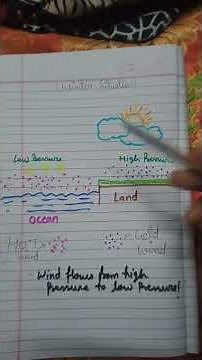 Winter Studies
Low Pressure
High Pressure
Land
Ocean
Hot
wind
Cold
wind
Wind flows from high
Pressure to low Pressure!